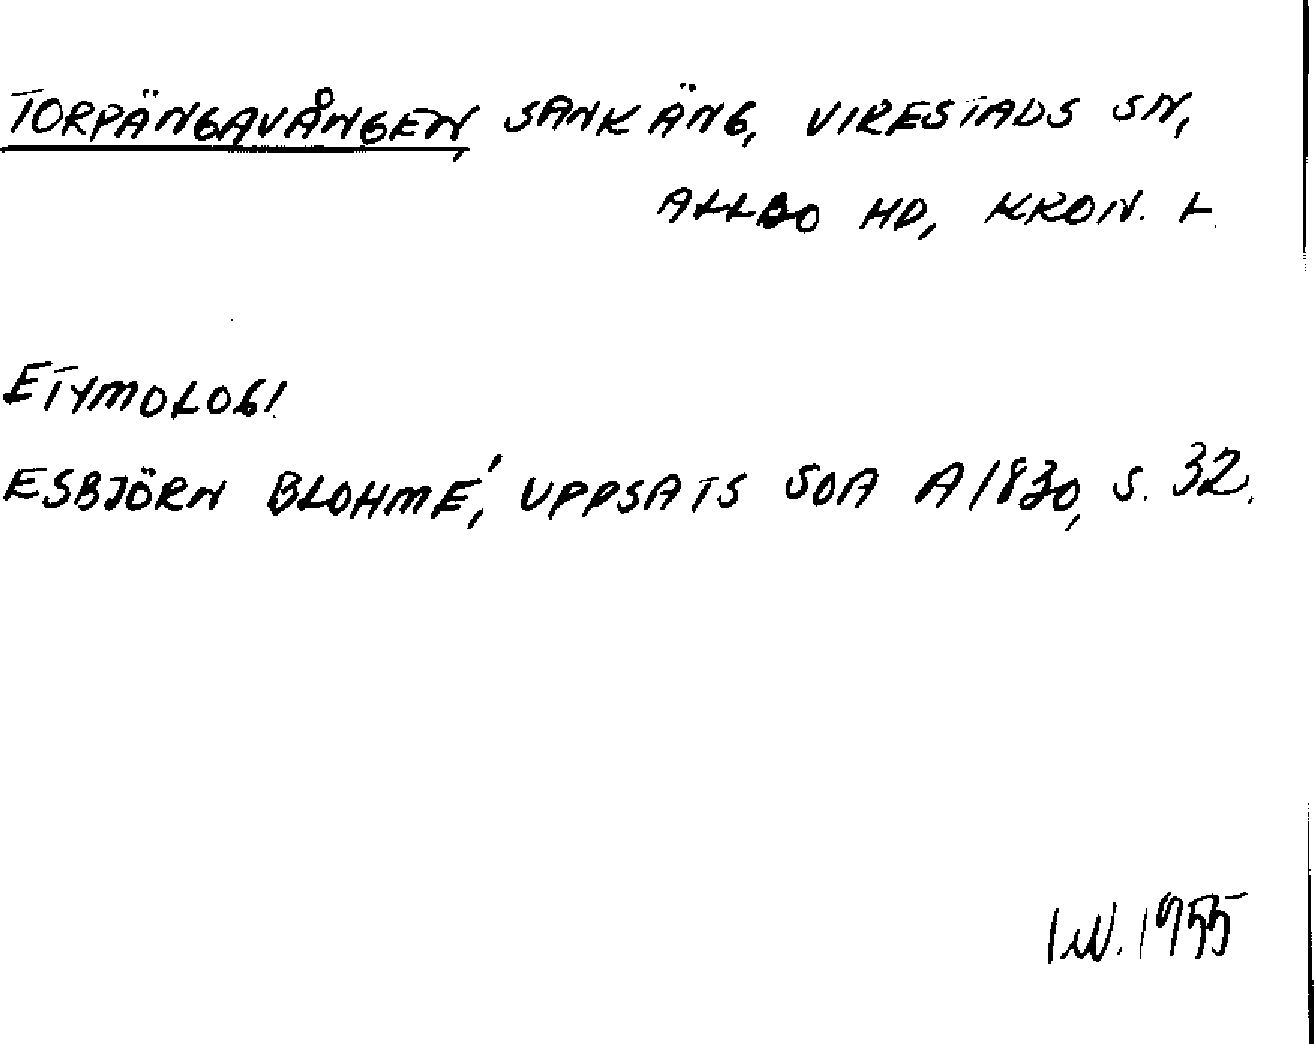 TORPÄNGAVÅNGEN, SANKÄNG, VIRESTADS SN,
ALLBO HD, KRON. L.
ETYMOLOGI
ESBJÖRN BLOHMÉ, UPPSATS SOA A 1830, S. 32.
I.W. 1955